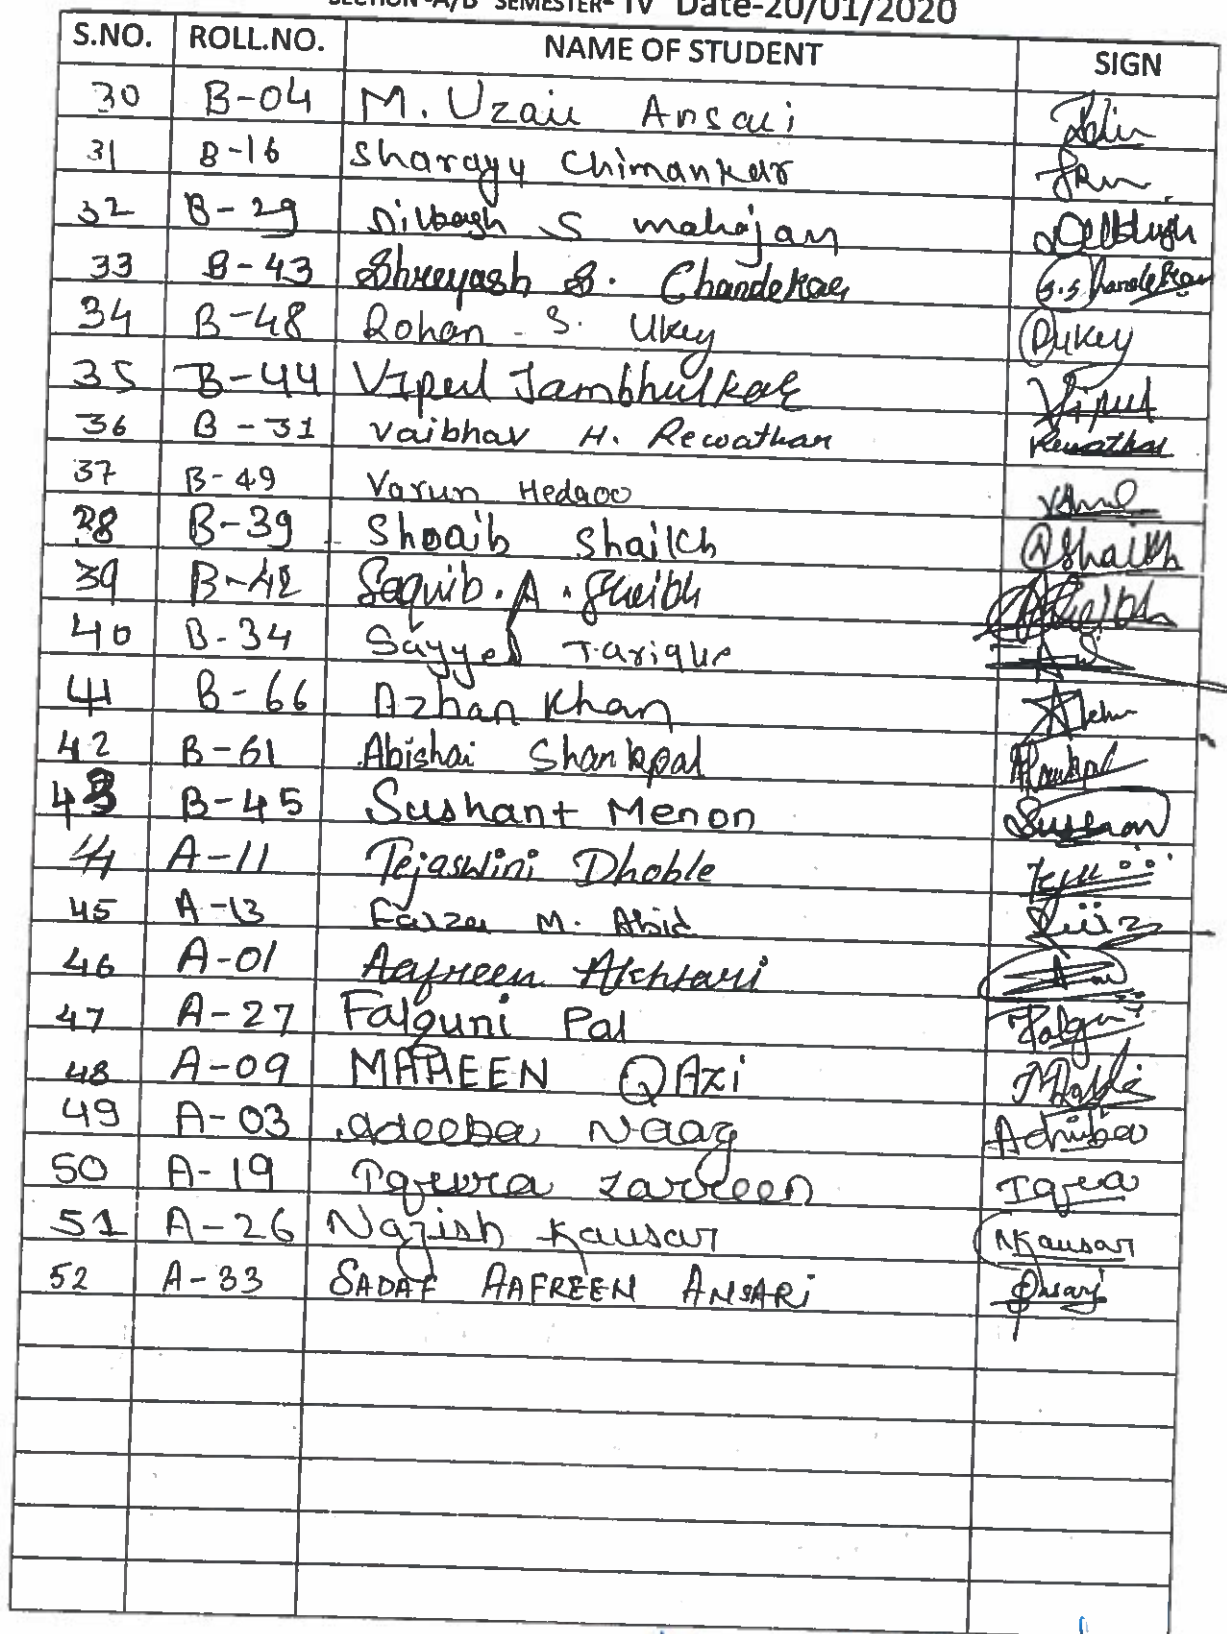 SECTION-A/B SEMESTER- IV Date-20/01/2020
S.NO. ROLL.NO. NAME OF STUDENT SIGN
30 B-04 M. Uzair Ansari
31 B-16 Sharayu Chimankar
32 B-29 Dilbagh S mahajan
33 B-43 Shreyash S. Chandekar S.S Chandekar
34 B-48 Rohan - S. Ukey RUkey
35 B-44 Vipul Jambhulkar Vipul
36 B-31 Vaibhav H. Rewatkar Rewatkar
37 B-49 Varun Hedaoo
38 B-39 Shoaib Shaikh Shaikh
39 B-42 Saquib. A. Sheikh
40 B-34 Sayyed Tarique
41 B-66 Azhan Khan
42 B-61 Abishai Shankpal
43 B-45 Sushant Menon
44 A-11 Tejaswini Dhoble
45 A-13 M. Abid
46 A-01 Aafreen Akhtari
47 A-27 Falguni Pal Falguni
48 A-09 MAHEEN QAZi
49 A-03 Adeeba Naaz Adeeba
50 A-19 Zarreen Iqra
51 A-26 Nazish Kausar NKausar
52 A-33 SADAF AAFREEN ANSARi Ansari